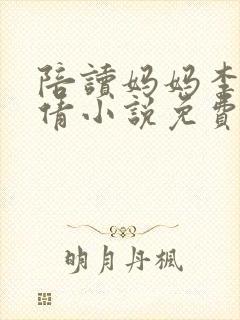 陪讀媽媽李
倩小說免費
明月丹楓